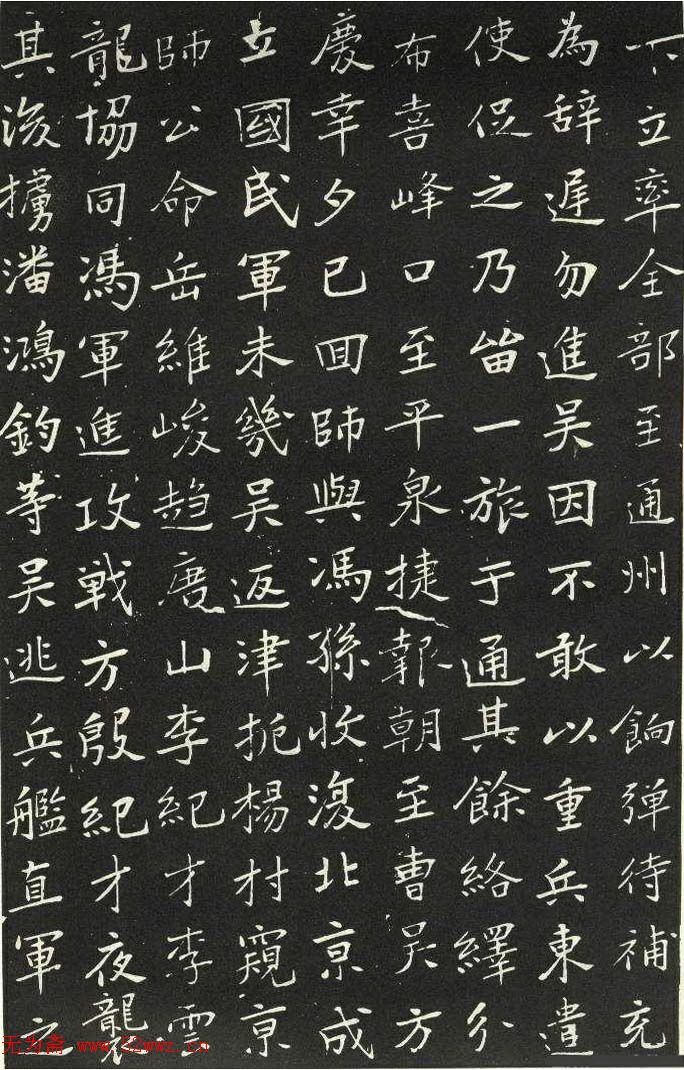 下立率全部至通州以餉彈待補充
為辞遲勿進吴因不敢以重兵東遣
使促之乃畱一旅于通其餘絡繹分
布喜峰口至平泉捷報朝至曹吴方
慶幸夕已回師與馮孫收復北京成
立國民軍未幾吴返津扼楊村窺京
師公命岳維峻趋唐山李紀才李雲
龍協同馮軍進攻戰方殷紀才夜襲
其後擄潘鴻鈞等吴逃兵艦直軍之
无为斋 www.52wwz.cn